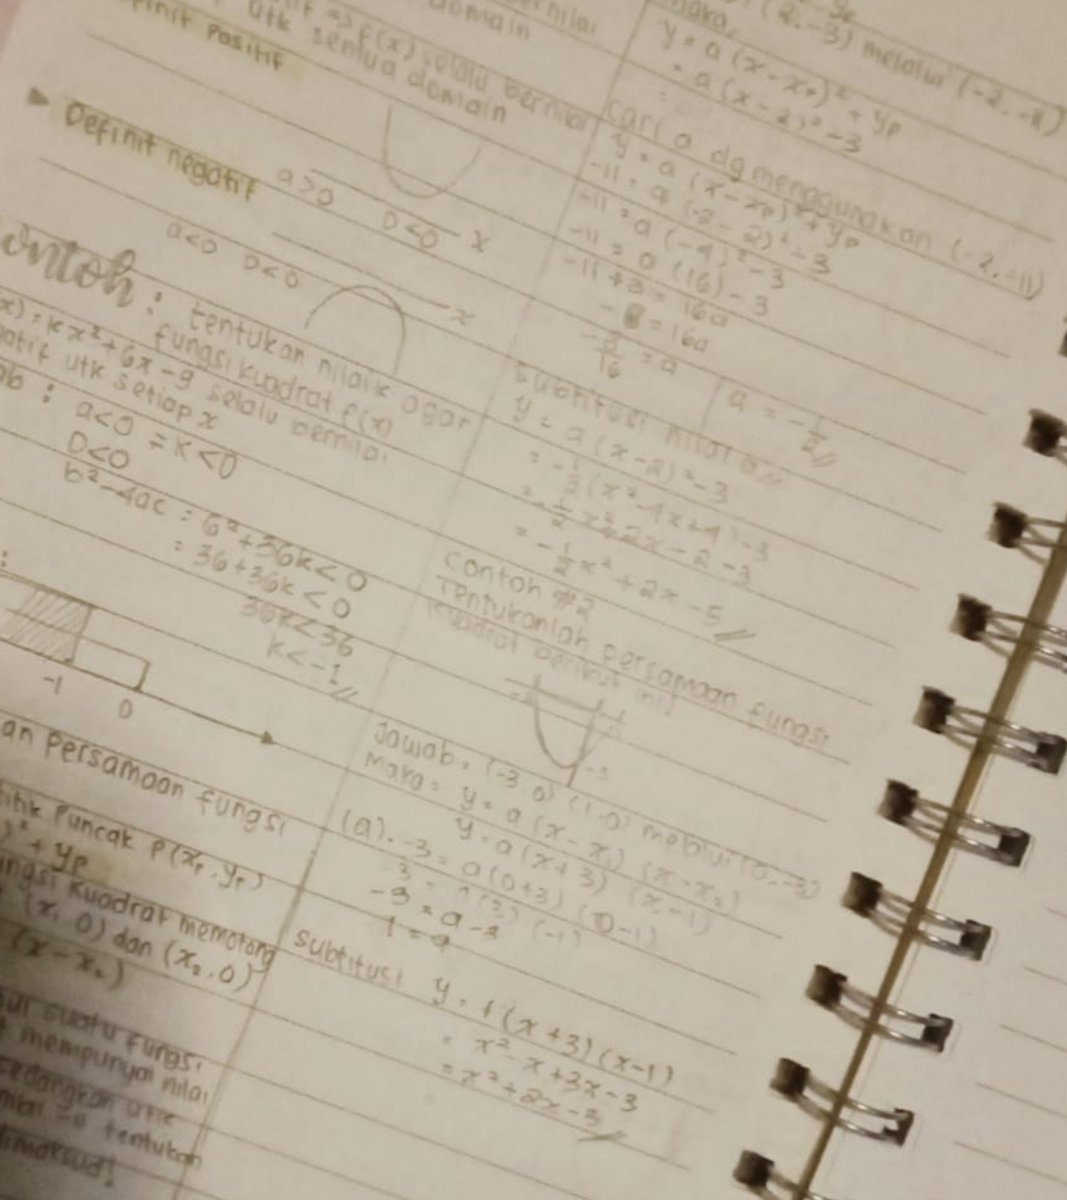 f(x) selalu bernilai
utk semua domain
Definit Positif
a>0 D<0 x
Definit negatif
a<0 D<0
x
Contoh: tentukan nilai k agar
fungsi kuadrat f(x)
x) = kx² + 6x - 9 selalu bernilai
utk setiap x
a<0 = k<0
D<0
b² - 4ac = 6² + 36k < 0
= 36 + 36k < 0
36k < 36
k < -1
-1 0
an persamaan fungsi
titik Puncak P(xp, yp)
)² + yp
ngsi kuadrat memotong
(x, 0) dan (x₂, 0)
(x - x₂)
suatu fungsi
mempunyai nilai
sedangkan utk
tentukan
dimaksud!
domain
(2, -3) melalui (-2, -11)
maka,
y = a (x - xp)² + yp
= a (x - 2)² - 3
Cari a dg menggunakan (-2, -11)
y = a (x - xp)² + yp
-11 = a (-2 - 2)² - 3
-11 = a (-4)² - 3
-11 = a (16) - 3
-11 + 3 = 16a
-8 = 16a
-8/16 = a a = -1/2
Subtitusi nilai a
y = a (x - 2)² - 3
= -1/2 (x² - 4x + 4) - 3
= -1/2 x² + 2x - 2 - 3
= -1/2 x² + 2x - 5
Contoh #2
Tentukanlah persamaan fungsi
kuadrat berikut ini!
-3
Jawab = (-3, 0) (1, 0) melalui (0, -3)
Maka = y = a (x - x₁) (x - x₂)
y = a (x + 3) (x - 1)
(a). -3 = a (0+3) (0-1)
-3 = a (3) (-1)
-3 = a -3
1 = a
Subtitusi y = 1 (x + 3) (x - 1)
= x² - x + 3x - 3
= x² + 2x - 3